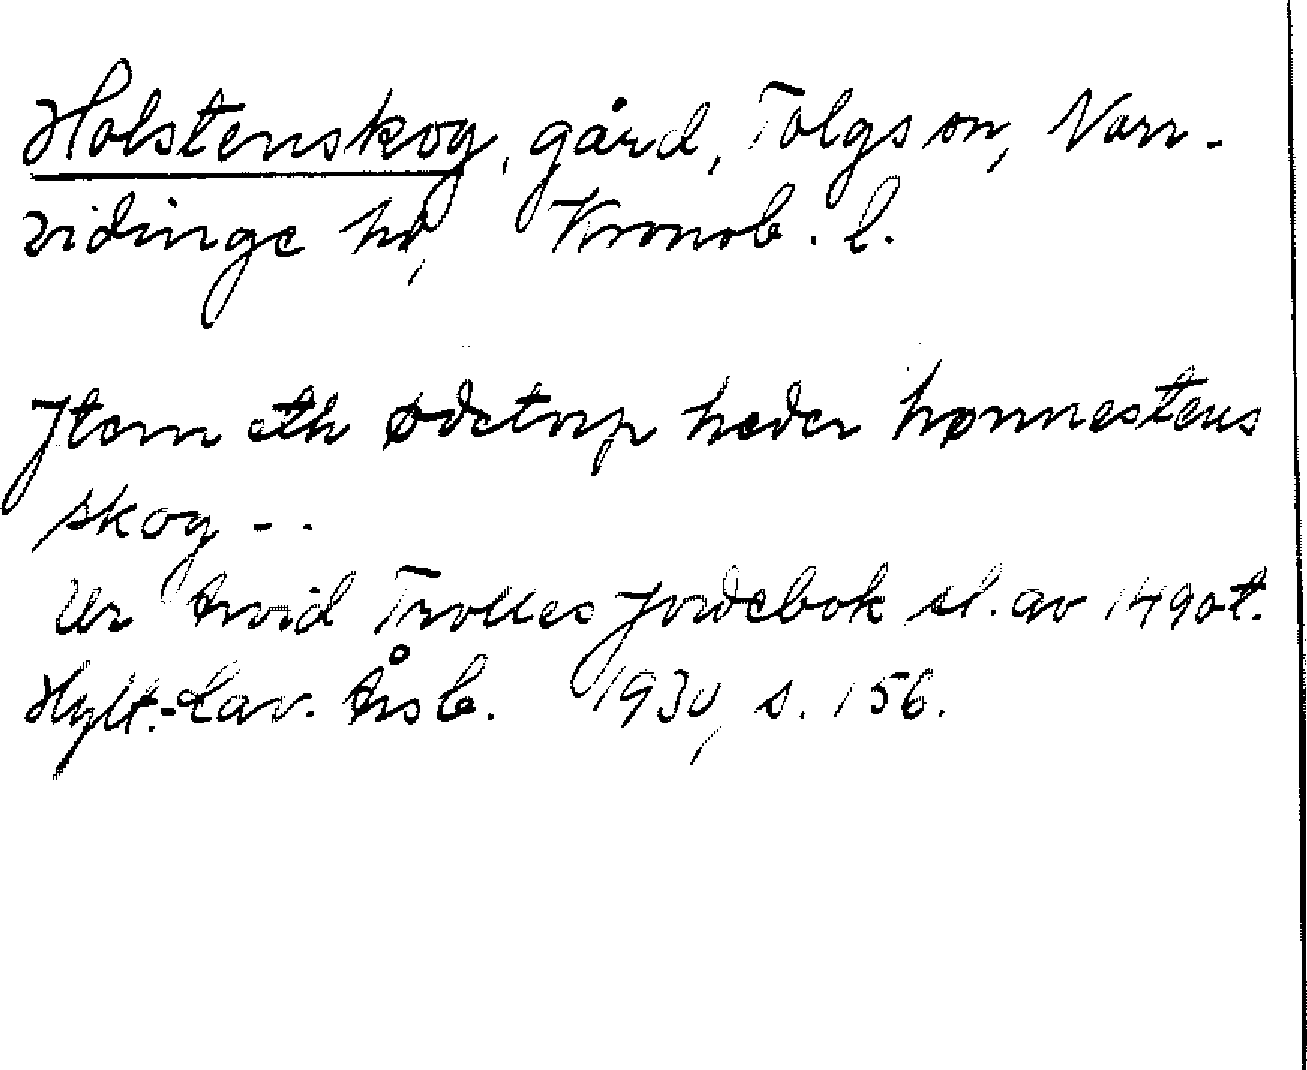 Holstenskog, gård, Tolgs sn, Norr-
vidinge hd, Kronob. l.
Jtem eth ødetorp heder hønnestens
skog - -
Ur Arvid Trolles jordebok sl. av 1490t.
Hylt.-Cav. Årsb. 1930, s. 156.